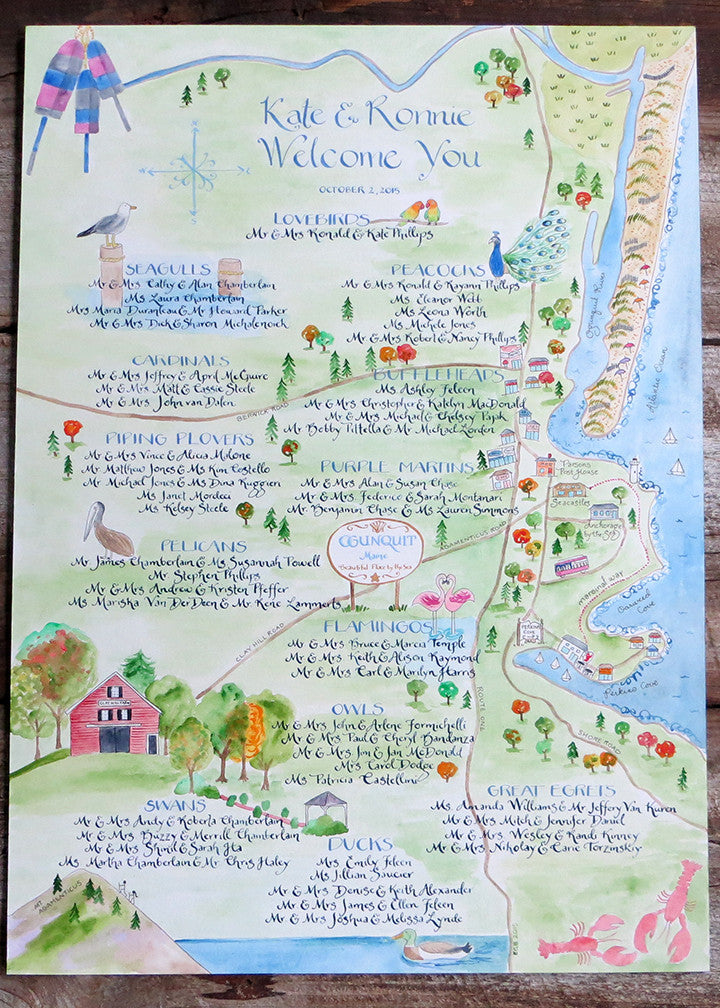 Kate & Ronnie
Welcome You
OCTOBER 2, 2015
LOVEBIRDS
Mr & Mrs Ronald & Kate Phillips
SEAGULLS
Mr & Mrs Cathy & Alan Chamberlain
Ms Laura Chamberlain
Mrs Maria Duranleau & Mr Howard Parker
Mr & Mrs Dick & Sharon Michalenoick
PEACOCKS
Mr & Mrs Ronald & Kayann Phillips
Ms Eleanor Witt
Ms Leona Worth
Ms Michele Jones
Mr & Mrs Robert & Nancy Phillips
CARDINALS
Mr & Mrs Jeffrey & April McGuire
Mr & Mrs Matt & Cassie Steele
Mr & Mrs John van Dalen
BERWICK ROAD
BUFFLEHEADS
Ms Ashley Feleen
Mr & Mrs Christopher & Katelyn MacDonald
Mr & Mrs Michael & Chelsey Papak
Mr Bobby Pittella & Mr Michael Lorden
PIPING PLOVERS
Mr & Mrs Vince & Alicia Malone
Mr Matthew Jones & Ms Kim Costello
Mr Michael Jones & Ms Dina Ruggieri
Ms Janet Mordecci
Ms Kelsey Steele
PURPLE MARTINS
Mr & Mrs Alan & Susan Chase
Mr & Mrs Federico & Sarah Montanari
Mr Benjamin Chase & Ms Lauren Simmons
Ogunquit River
Atlantic Ocean
Parsons
Post House
Seacastles
Anchorage
by the Sea
AGAMENTICUS ROAD
OGUNQUIT
Maine
Beautiful Place by the Sea
PELICANS
Mr James Chamberlain & Ms Susannah Powell
Mr Stephen Phillips
Mr & Mrs Andrew & Kristen Pfeffer
Ms Mariska Van Der Deen & Mr Rene Lammerts
marginal way
Oarweed
Cove
PERKINS
COVE
Perkins Cove
CLAY HILL ROAD
FLAMINGOS
Mr & Mrs Bruce & Marcia Temple
Mr & Mrs Keith & Alison Raymond
Mr & Mrs Earl & Marilyn Harris
ROUTE ONE
SHORE ROAD
OWLS
Mr & Mrs John & Arlene Formichelli
Mr & Mrs Paul & Cheryl Bandanza
Mr & Mrs Jon & Jan McDonald
Mrs Carol Dodge
Ms Patricia Castellini
GREAT EGRETS
Ms Amanda Williams & Mr Jeffery Van Kuren
Mr & Mrs Mitch & Jennifer Daniel
Mr & Mrs Wesley & Randi Kinney
Mr & Mrs Nikolay & Carie Torzinskiy
SWANS
Mr & Mrs Andy & Roberta Chamberlain
Mr & Mrs Buzzy & Merrill Chamberlain
Mr & Mrs Shinil & Sarah Jta
Ms Martha Chamberlain & Mr Chris Haley
DUCKS
Ms Emily Feleen
Ms Jillian Saucier
Mr & Mrs Denise & Keith Alexander
Mr & Mrs James & Ellen Feleen
Mr & Mrs Joshua & Melissa Lynde
MT
AGAMENTICUS